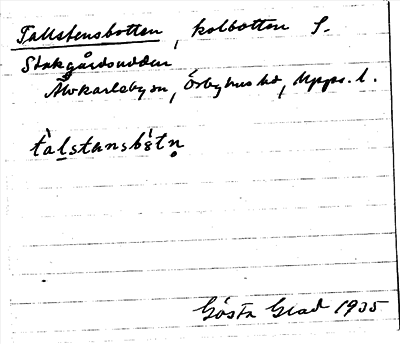 Tallstensbotten, kolbotten S.
Stakgårdsudden
Älvkarleby sn, Örbyhus hd, Upps. l.
tàlstansbǽtn̥
Gösta Grad 1935